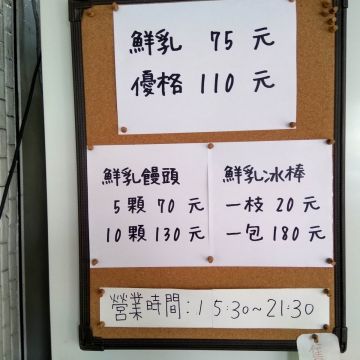 鮮乳 75 元
優格 110 元
鮮乳饅頭
5 顆 70 元
10 顆 130 元
鮮乳冰棒
一枝 20 元
一包 180 元
營業時間:15:30~21:30